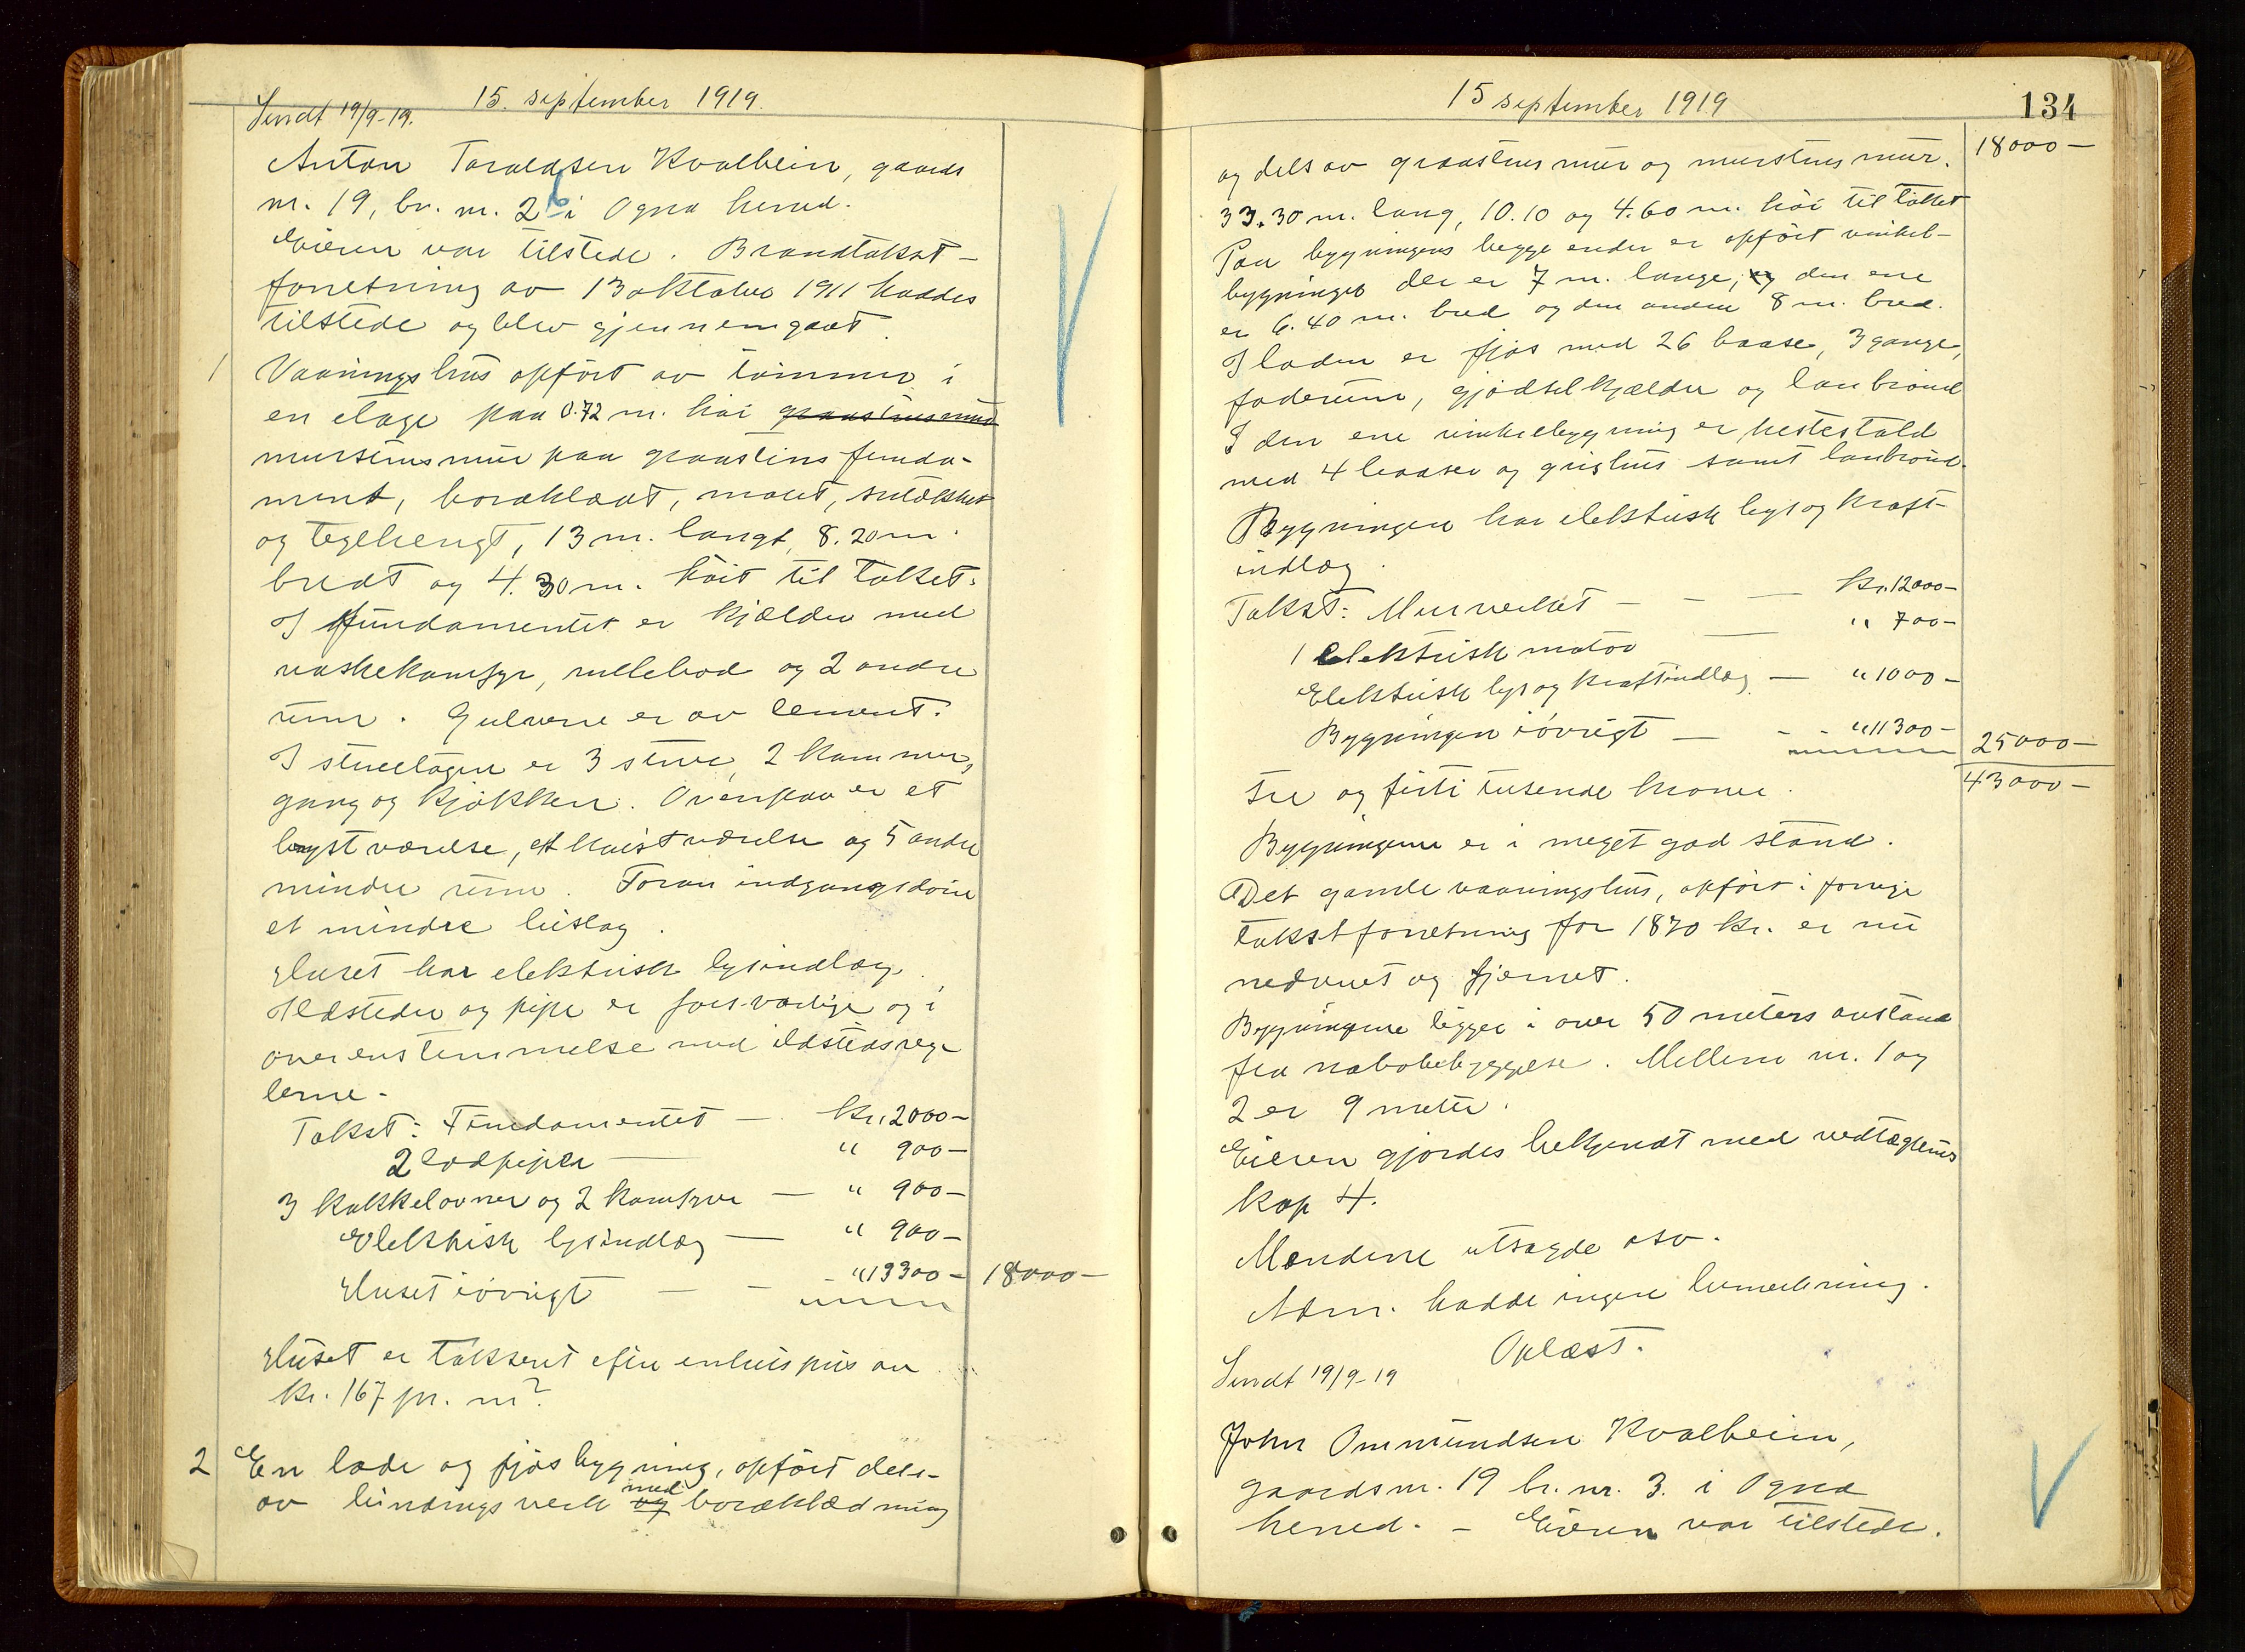 15. september 1919.
Sendt 19/9-19.
Anton Taraldsen Kvalbein, gaards
nr. 19, br. nr. 2 i Ogna herred.
Eieren var tilstede. Brandtakst-
forretning av 13 oktober 1911 haddes
tilstede og blev gjennemgaat.
1 Vaaningshus opført av tømmer i
en etage paa 0.72 m. høi graastensmur
murstensmur paa graastens funda-
ment, bordklædt, malet,
og teglhengt, 13 m. langt, 8.20 m.
bredt og 4.30 m. høit til taket.
I fundamentet er kjælder med
vaskekomfyr, rullebod og 2 andre
rum. Gulvene er av cement.
I stueetagen er 3 stuer, 2 kammer,
gang og kjøkken. Ovenpaa er et
værelse, et kvistværelse og 5 andre
mindre rum. Foran indgangsdøren
et mindre bislag.
Huset har elektrisk lysindlæg.
Ildsteder og pipe er forsvarlige og i
overenstemmelse med ildstedsreg-
lerne.
Takst: Fundamentet — kr. 2000-
2 lodpiper — " 900-
3 kakkelovner og 2 komfyrer — " 900-
Elektrisk lysindlæg — " 900-
Huset iøvrigt — - - "13300- 18000-
Huset er taksert efter enhetspris av
kr. 167 pr. m²
2 En lade og fjøsbygning, opført dels
av bindingsverk og med bordklædning
15 september 1919
134
og dels av graastensmur og murstensmur. 18000-
33.30 m. lang, 10.10 og 4.60 m. høi til taket
Paa bygningens begge ender er opført vinkel-
bygninger der er 7 m. lange, og den ene
er 6.40 m. bred og den anden 8 m. bred.
I laden er fjøs med 26 baase, 3 gange,
foderum, gjødselkjælder og landbrønd
I den ene vinkelbygning er hestestald
med 4 baaser og grishus samt landbrønd.
Bygningen har elektrisk lys og kraft-
indlæg.
Takst: Murverket — - — kr. 12000-
1 elektrisk motor — " 700-
Elektrisk lys og kraftindlæg — " 1000-
Bygningen iøvrigt — - - "11300- 25000-
tre og firti tusende kroner. 43000-
Bygningerne er i meget god stand.
Det gamle vaaningshus, opført i forrige
takstforretning for 1870 kr. er nu
nedrevet og fjernet.
Bygningerne ligger i over 50 meters avstand
fra nabobebyggelse. Mellem nr. 1 og
2 er 9 meter.
Eieren gjordes bekjendt med vedtægtens
kap 4.
Mændene utsagde osv.
Adm. hadde ingen bemerkning.
Oplæst.
Sendt 19/9-19
John Ommundsen Kvalbein,
gaardsnr. 19 br. nr. 3. i Ogna
herred. - Eieren var tilstede.